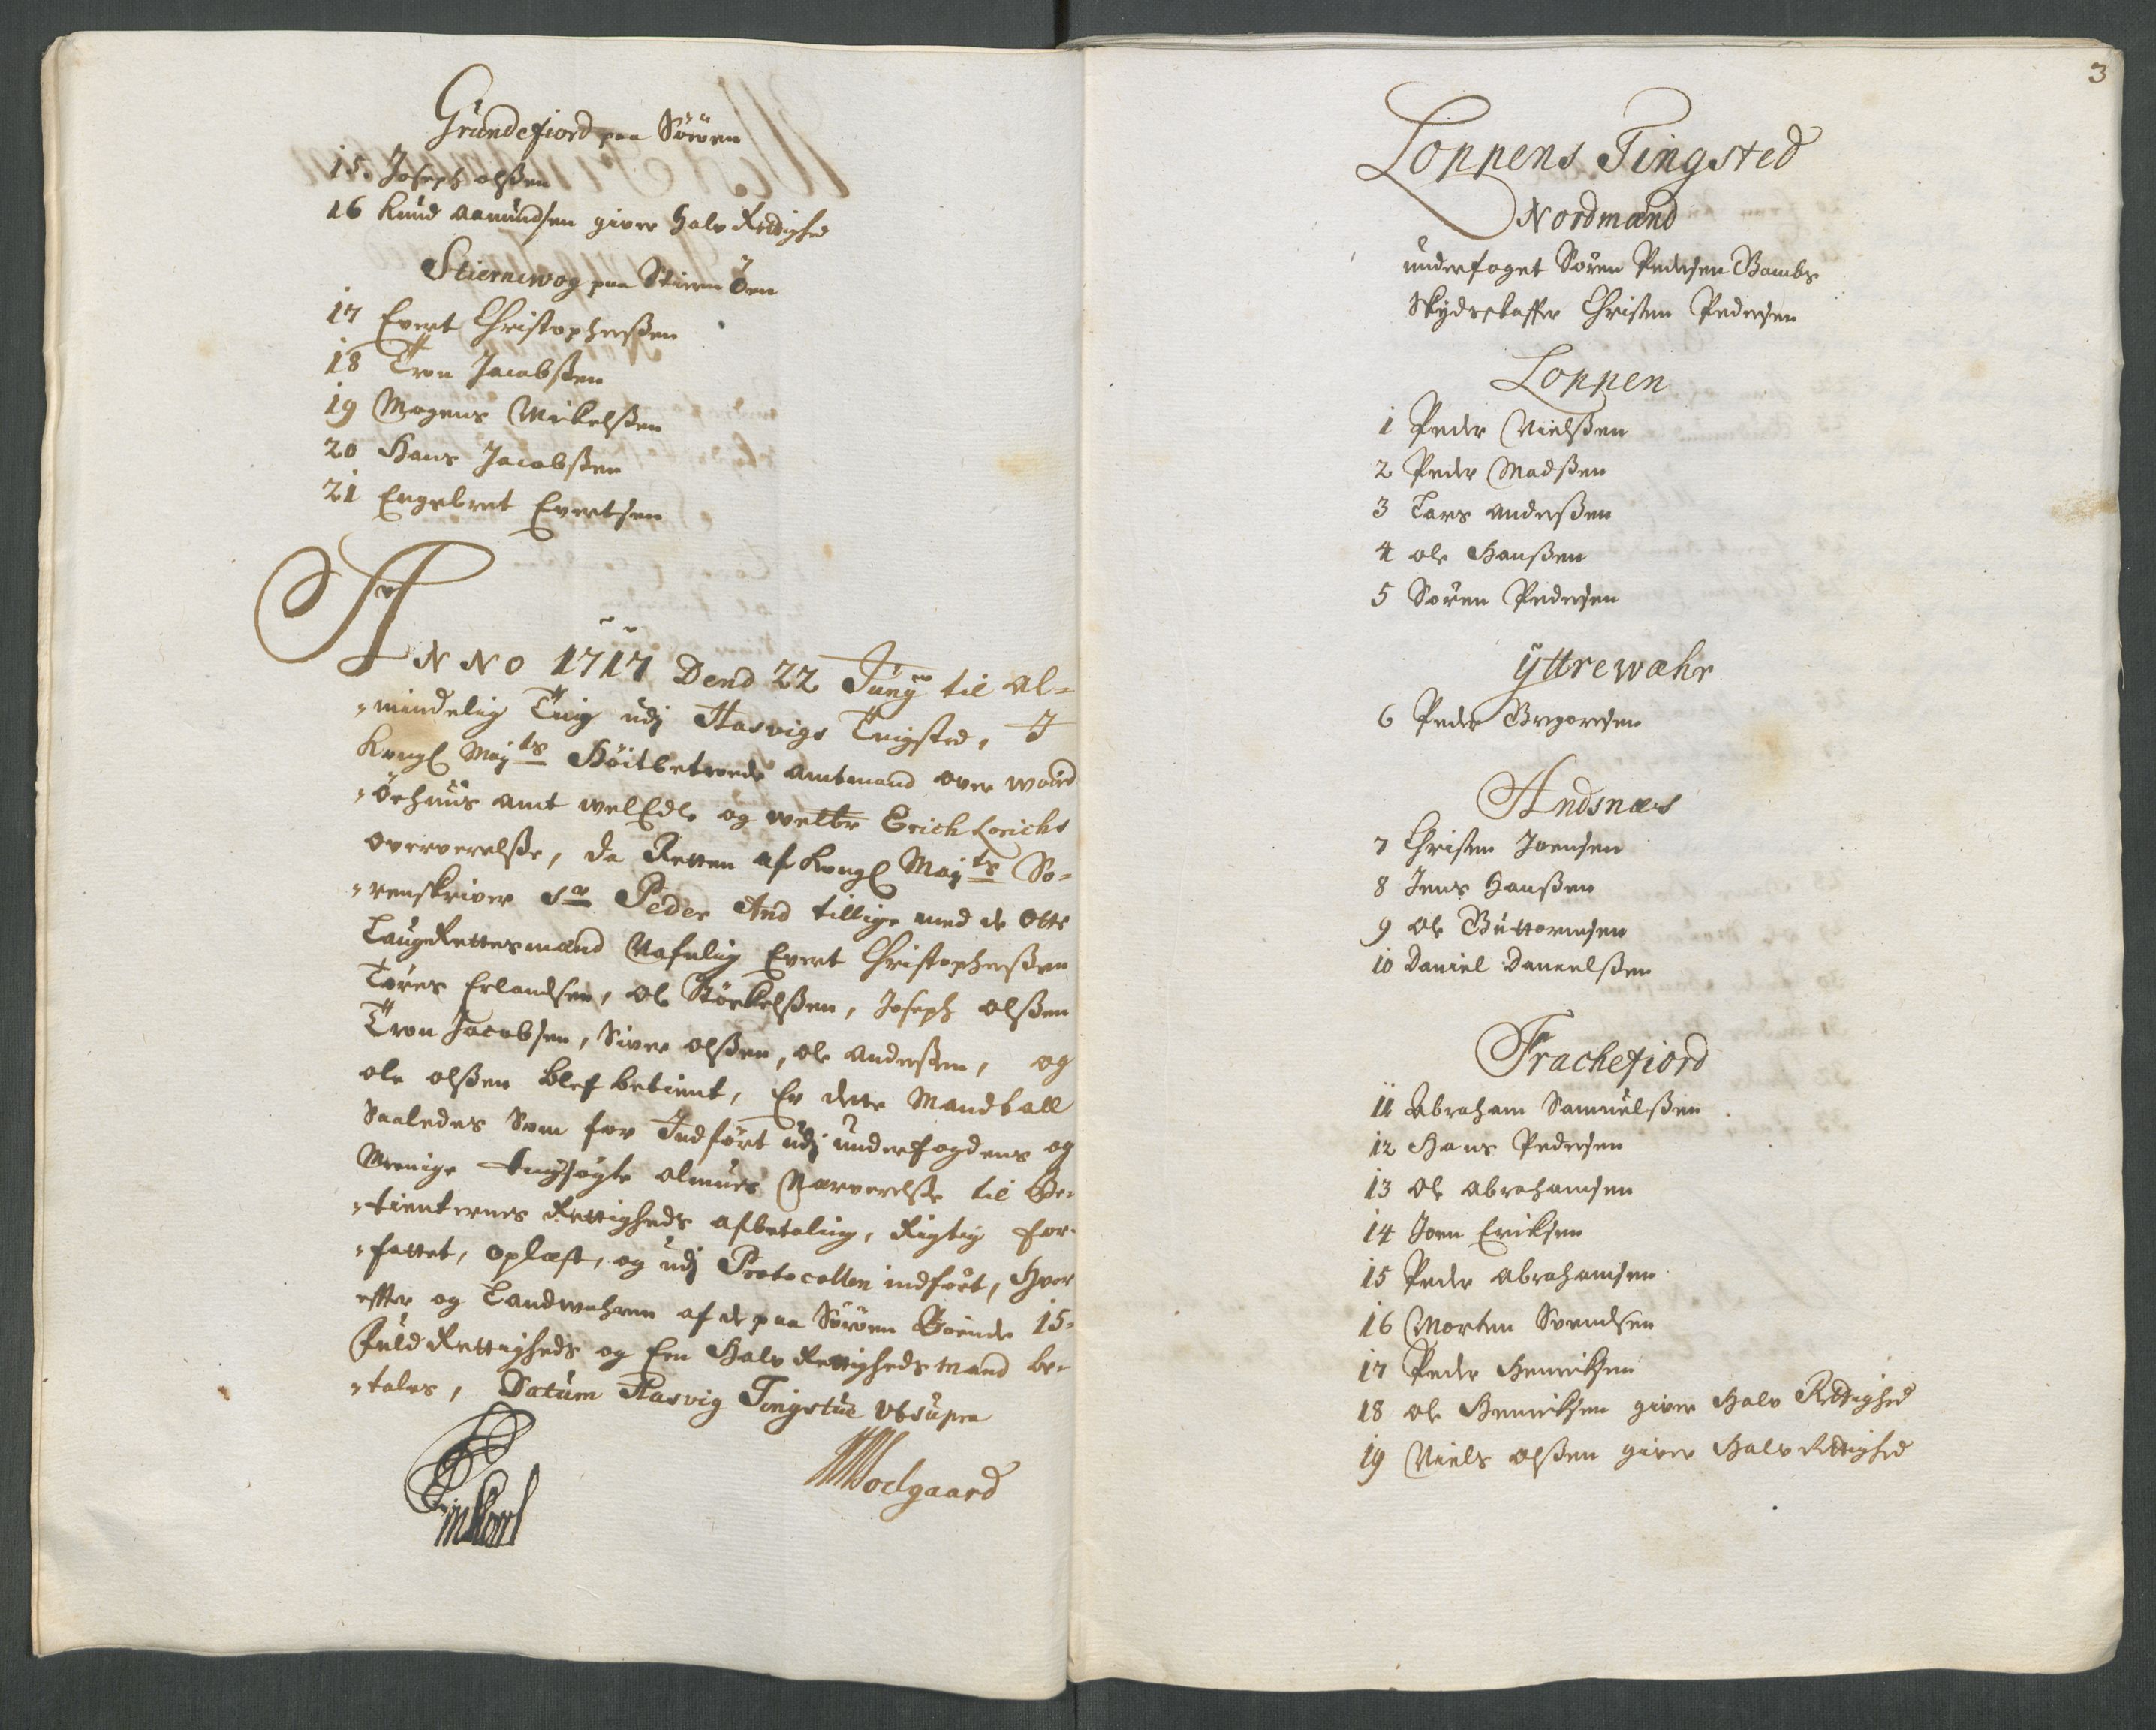 Grundefiord paa Söröen
15. Joseph olßen
16 Knud Aamundsen giver halv Rettighed
Stiernewog paa Stiern Öen
17 Evert Christopherßen
18 Tron Jacobßen
19 Mogens Mickelßen
20 Hans Jacobßen
21 Engebret Evertsen
ANNO 1717 Dend 22 Junÿ til al-
-mindelig Ting udj Hasvigs Tingsted, I
Kongl Maÿts Höitbetroede Amtmand over Word
-öehuus Amt welEdle og welbr Erich Lorichs
oververelße, da Retten af Kongl Maÿts So-
-renskriver Sr Peder And tillige med de Otte
LaugRettesmænd Nafnlig Evert Christopherßen
Tores Erlandsen, Ole Törkelßen, Joseph olßen
Tron Jacobsen, Siver olßen, Ole Anderßen, og
ole olßen blef betient, Er dette Mandtall
Saaledes Som for Indfört udj underfogdens og
Menige tingsögte almues Nærverelße til Be-
-tienternes Rettigheds afbetaling, Rigtig for-
-fattet, oplæst, og udj Protocollen indfört, hvor
effter og Landwahren af de paa Söröen Boende 15-
Fuld Rettigheds og Een halv Rettigheds mand be-
-tales, Datum Hasvig Tingstue Utsupra
Wodgaard
3
Loppens Tingsted
Nordmænd
underfoget Sören Pedersen Bambs
Skydsskaffer Christen Pedersen
Loppen
1 Peder Nielßen
2 Peder Madßen
3 Lars Anderßen
4 ole Hanßen
5 Sören Pedersen
ÿttrewæhr
6 Peder Gregorisen
Andsnæs
7 Christen Joensen
8 Jens Hanßen
9 Ole Guttormsen
10 Daniel Danielßen
Frachefiord
11 Abraham Samuelßen
12 Hans Pedersen
13 Ole Abrahamsen
14 Joen Eriksen
15 Peder Abrahamsen
16 Morten Svendsen
17 Peder Henriksen
18 ole Henriksen giver halv Rettighed
19 Niels olßen giver halv Rettighed